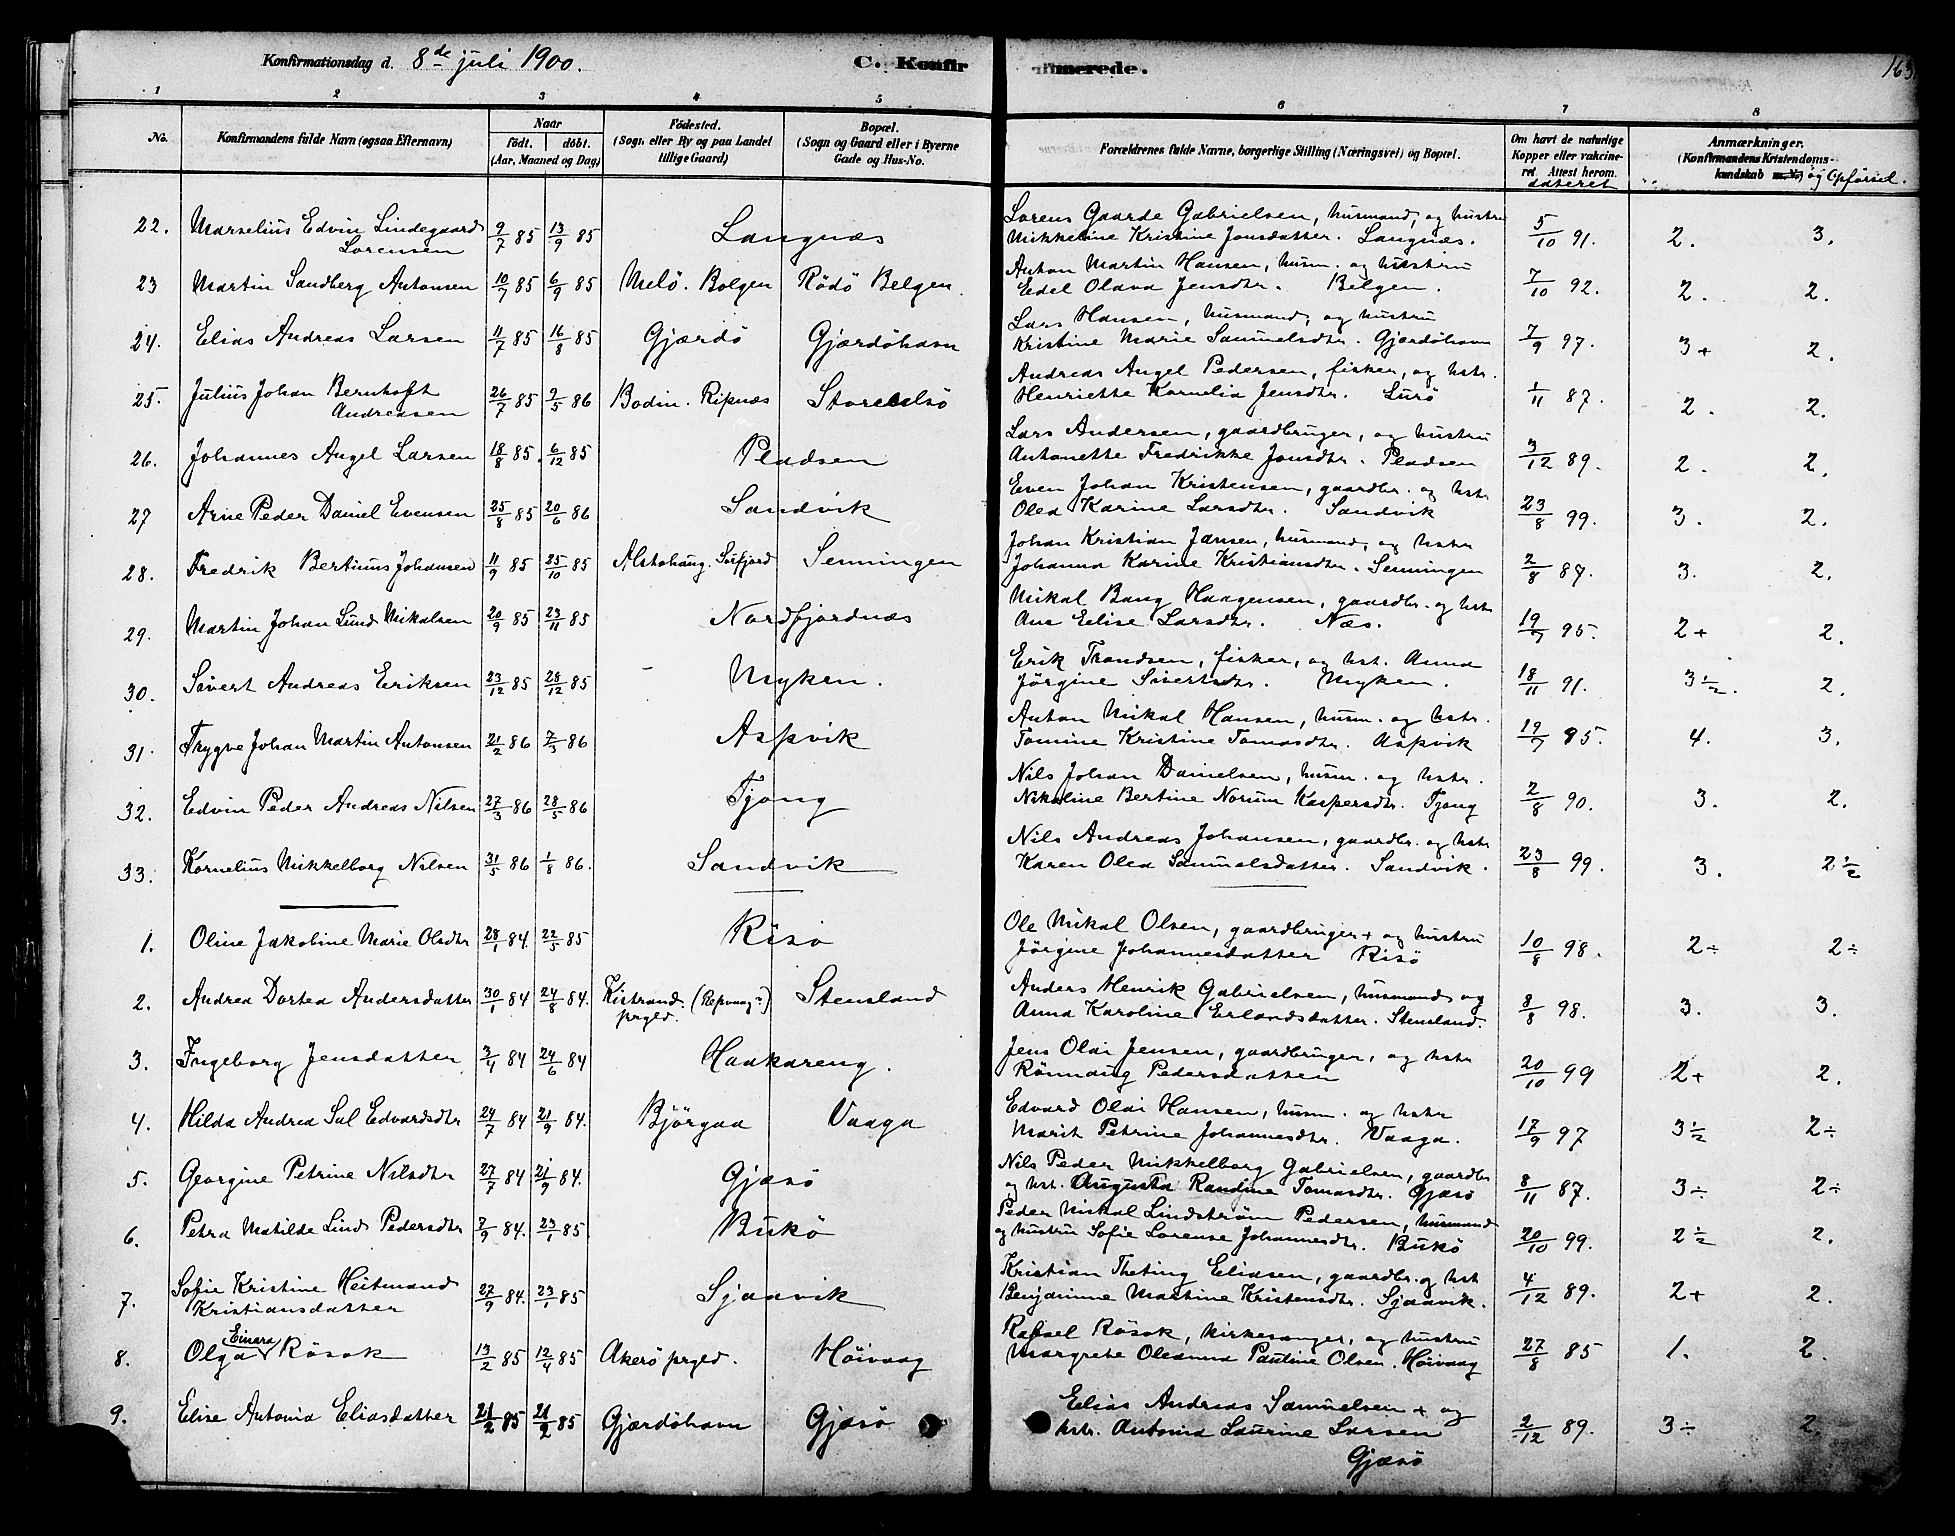 Konfirmationsdag d. 8de juli 1900. C. Konfirmerede. 163
1 2 3 4 5 6 7 8
No. Konfirmandens fulde Navn (ogsaa Efternavn) Naar Født. døbt. (Aar, Maaned og Dag) Fødested. (Sogn eller By og paa Landet tillige Gaard) Bopæl. (Sogn og Gaard eller i Byerne Gade og Hus-No. Forældrenes fulde Navne, borgerlige Stilling (Næringsvei) og Bopæl. Om havt de naturlige Kopper eller vakcineret. Attest herom. dateret Anmærkninger. (Konfirmandens Kristendomskundskab m. V.) og Opførsel.
22. Marselius Edvin Lindegaard Lorensen 9/7 85 13/9 85 Langnæs Lorens Gaarde Gabrielsen, husmand, og hustru Mikkeline Kristine Jonsdatter. Langnæs. 5/10 91. 2. 3.
23 Martin Sandberg Antonsen 10/7 85 6/9 85 Melö. Bolgen Rödö Belgen. Anton Martin Hansen, husm. og hustru Edel Olava Jensdtr. Bolgen. 7/10 92. 2. 2.
24. Elias Andreas Larsen 11/7 85 16/8 85 Gjærdö Gjærdöhavn Lars Hansen, husmand, og hustru Kristine Marie Samuelsdtr. Gjærdöhavn 7/9 97. 3+ 2.
25. Julius Johan Bernhoft Andreasen 26/7 85 2/5 86 Bodin. Ripnæs Storeselsö Andreas Angel Pedersen, fisker, og hstr. Henriette Kornelia Jensdtr. Lurö 1/11 87. 2. 2.
26. Johannes Angel Larsen 18/8 85. 6/12 85 Pladsen Lars Andersen, gaardbruger, og hustru Antonette Fredrikke Jonsdtr. Pladsen 3/12 89. 2. 2.
27 Arne Peder Daniel Evensen 25/8 85 20/6 86 Sandvik Even Johan Kristensen, gaardbr. og hstr Olea Karine Larsdtr. Sandvik 23/8 99. 3. 2.
28. Fredrik Bertinus Johansen 11/9 85 25/10 85 Alstahaug. Sörfjord Senningen Johan Kristian Jansen, husmand, og hstr Johanna Karine Kristiansdtr. Senningen 2/8 87. 3. 2.
29. Martin Johan Lund Mikalsen 20/9 85 23/11 85 Nordfjordnæs Mikal Bang Haagensen, gaardbr. og hstr Ane Elise Larsdtr. Næs. 19/7 95. 2+ 2.
30. Sivert Andreas Eriksen 23/12 85 28/12 85 Myken. Erik Trondsen, fisker, og hst. Anna Jörgine Sivertsdtr. Myken. 18/11 91. 3½. 2.
31. Trygve Johan Martin Antonsen 21/2 86 7/3 86 Aspvik Anton Mikal Hansen, husm. og hstr. Tomine Kristine Tomasdtr. Aspvik 19/7 95. 4. 3.
32. Edvin Peder Andreas Nilsen 27/3 86 28/5 86 Tjong Nils Johan Danielsen, husm. og hstr. Nikoline Bertine Norum Kaspersdtr. Tjong 2/8 90. 3. 2.
33. Kornelius Mikkelborg Nilsen 31/5 86 1/8 86. Sandvik Nils Andreas Johansen, gaardbr. og hstr Karen Olea Samuelsdatter. Sandvik. 23/8 99. 3. 2½
1. Oline Jakobine Marie Olsdtr 28/1 84. 22/5 85 Risö Ole Mikal Olsen, gaardbruger + og hustru Jörgine Johannesdatter Risö 10/8 98. 2÷ 2÷
2. Andrea Dortea Andersdatter 30/1 84 24/8 84. Kistrand prgld. (Repvaag?) Stensland Anders Henrik Gabrielsen, husmand og Anna Karoline Erlandsdatter. Stensland. 8/8 98. 3. 3.
3. Ingeborg Jensdatter 3/4 84 24/6 84 Haakareng. Jens Olai Jensen, gaardbruger, og hstr Rönnaug Pedersdatter 20/10 99 2+ 2.
4. Hilda Andrea Sal Edvardsdtr 24/7 84 21/9 84. Björgaa Vaaga Edvard Olai Hansen, husm. og hstr Marit Petrine Johannesdtr. Vaaga. 17/9 97 3½ 2÷
5. Georgine Petrine Nilsdtr 27/7 84 21/9 84. Gjæsö Nils Peder Mikkelborg Gabrielsen, gaardbr og hst. Augusta Randine Tomasdtr. Gjæsö 8/11 87. 3÷ 2÷
6. Petra Matilde Lind Pedersdtr 2/9 84. 23/1 85 Bukö Peder Mikal Lindström Pedersen, husmand og hustru Sofie Lorense Johannesdtr. Bukö 20/10 99. 2½ 2.
7. Sofie Kristine Heitmand Kristiansdatter 22/9 84. 23/1 85 Sjaavik Kristian Theting Eliasen, gaardbr. og hst Benjamine Martine Kristensdtr. Sjaavik. 4/12 89. 2+ 2.
8. Olga Einara Rösok 13/2 85 12/4 85 Akerö prgld. Höivaag Rafael Rösok, kirkesanger, og hustru Margrete Oleanna Pauline Olsen. Höivaag 27/8 85 1. 2.
9. Elise Antonia Eliasdatter 21/2 85 21/2 85 Gjærdöhavn Gjæsö Elias Andreas Samuelsen + og hstr. Antonia Laurine Larsen Gjæsö 2/12 89. 3÷ 2.